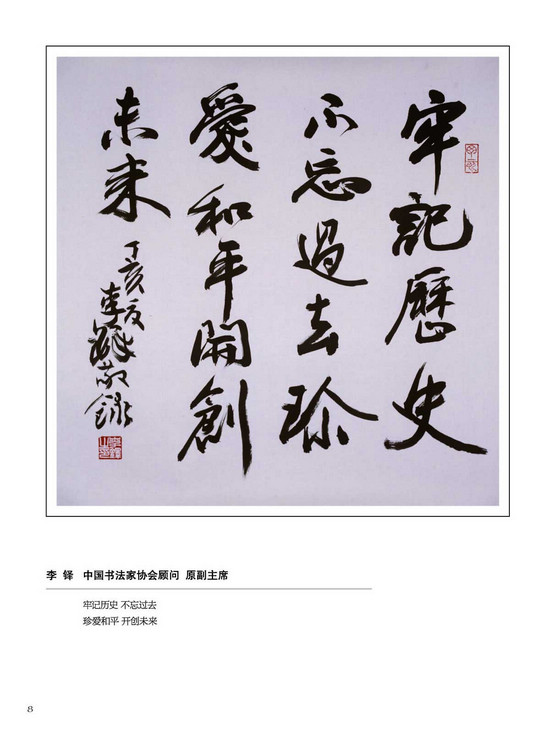 牢記歷史
不忘過去珍
愛和平開創
未来
丁亥夏李鐸敬錄
李 铎 中国书法家协会顾问 原副主席
牢记历史 不忘过去
珍爱和平 开创未来
8